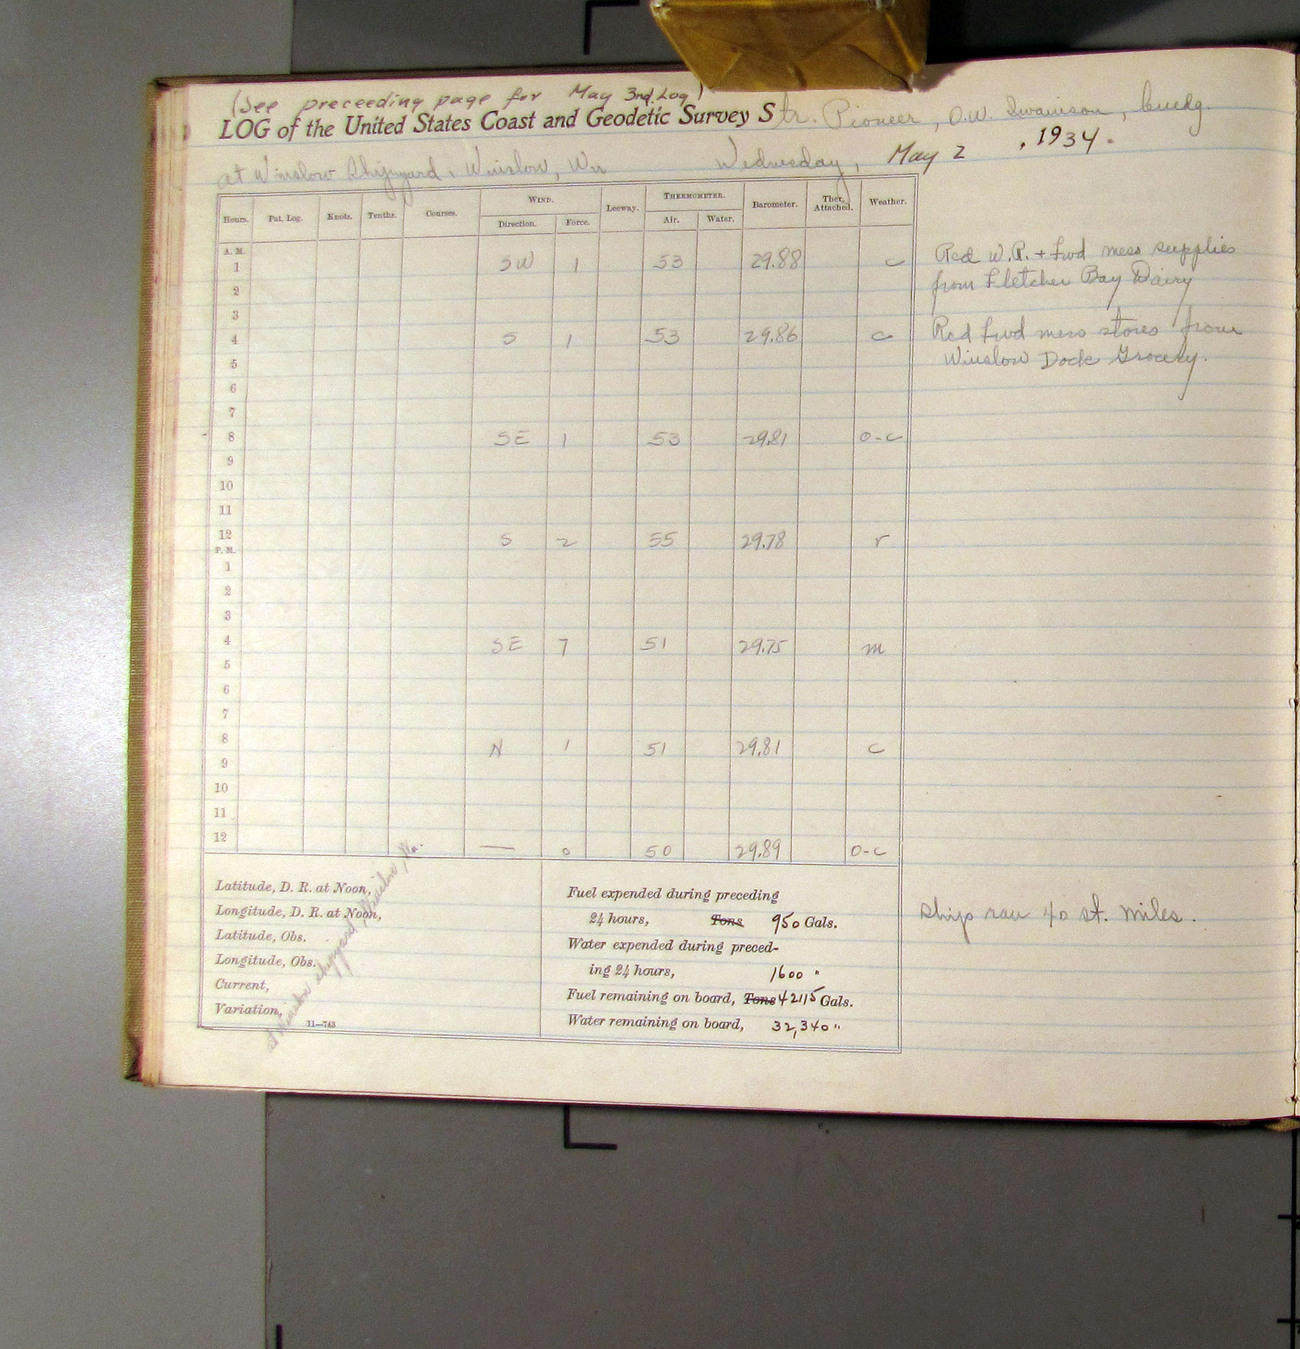 (See preceeding page for May 3rd Log)
LOG of the United States Coast and Geodetic Survey Str. Pioneer, O.W. Swainson, Comdg.
at Winslow Shipyard, Winslow, Wn Wednesday, May 2, 1934.
Hours. Pat. Log. Knots. Tenths. Courses. WIND. Leeway. THERMOMETER. Barometer. Ther. Attached. Weather.
Direction. Force. Air. Water.
A. M.
1 SW 1 53 29.88 c
2
3
4 S 1 53 29.86 c
5
6
7
8 SE 1 53 29.81 o-c
9
10
11
12 S 2 55 29.78 r
P. M.
1
2
3
4 SE 7 51 29.75 m
5
6
7
8 N 1 51 29.81 c
9
10
11
12 — 0 50 29.89 o-c
Rcd W.R. + Fwd mess supplies
from Fletcher Bay Dairy
Rcd Fwd mess stores from
Winslow Dock Grocery.
Latitude, D. R. at Noon,
Longitude, D. R. at Noon,
Latitude, Obs.
Longitude, Obs.
Current,
Variation,
11—743
at Winslow Shipyard, Winslow, Wn.
Fuel expended during preceding
24 hours, Tons 950 Gals.
Water expended during preced-
ing 24 hours, 1600 "
Fuel remaining on board, Tons 42115 Gals.
Water remaining on board, 32,340 "
Ship's run 40 st. miles.